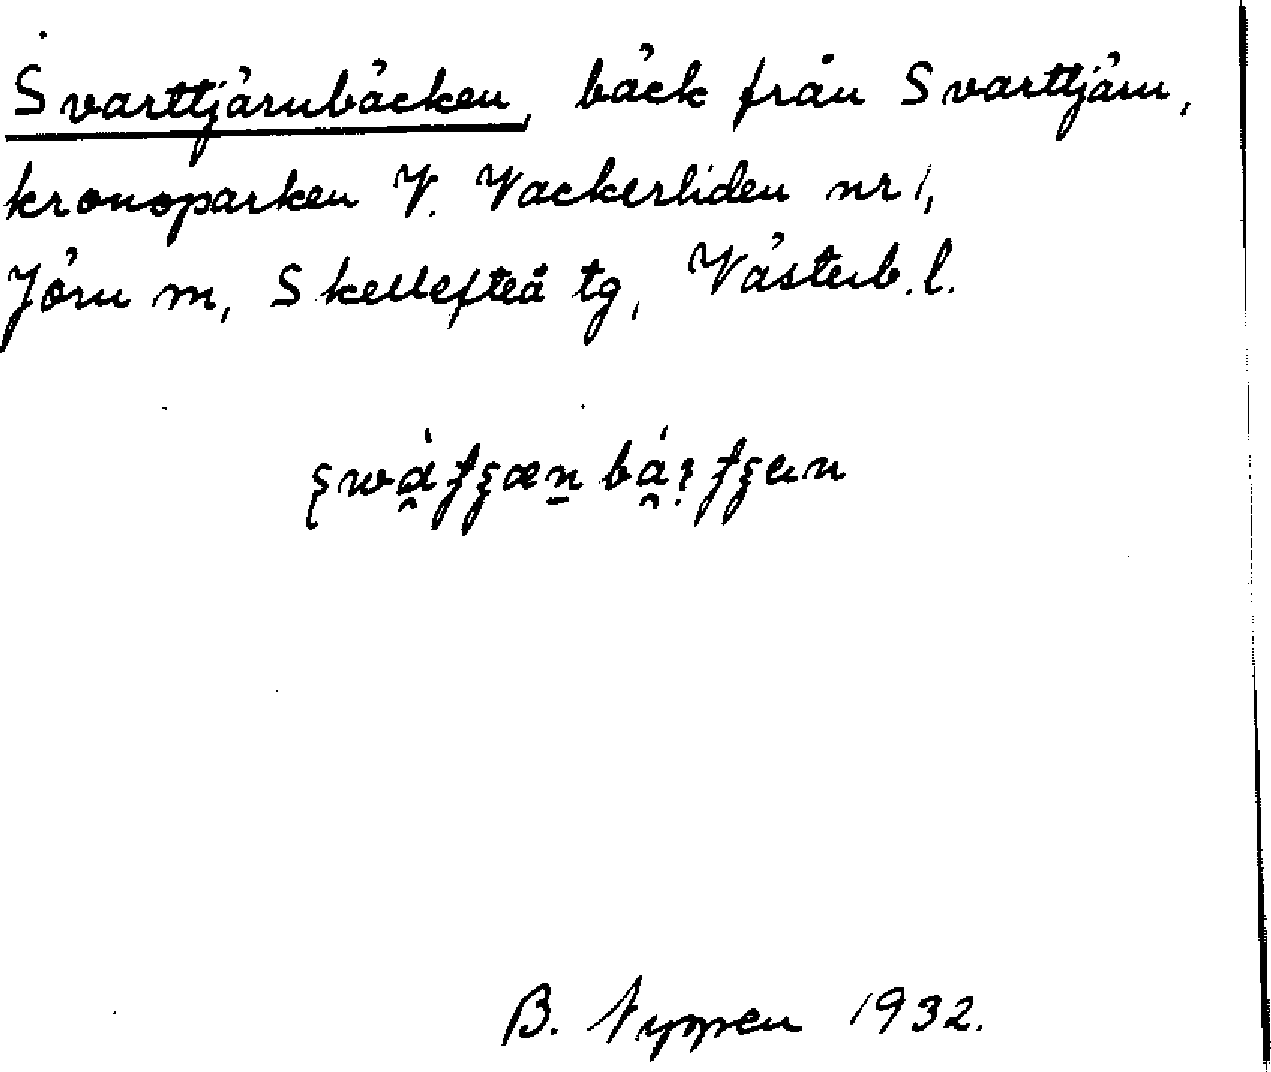 Svarttjärnbäcken, bäck från Svarttjärn,
kronoparken V. Vackerliden nr 1,
Jörn m, Skellefteå tg, Västerb. l.
B. Nyppen 1932.